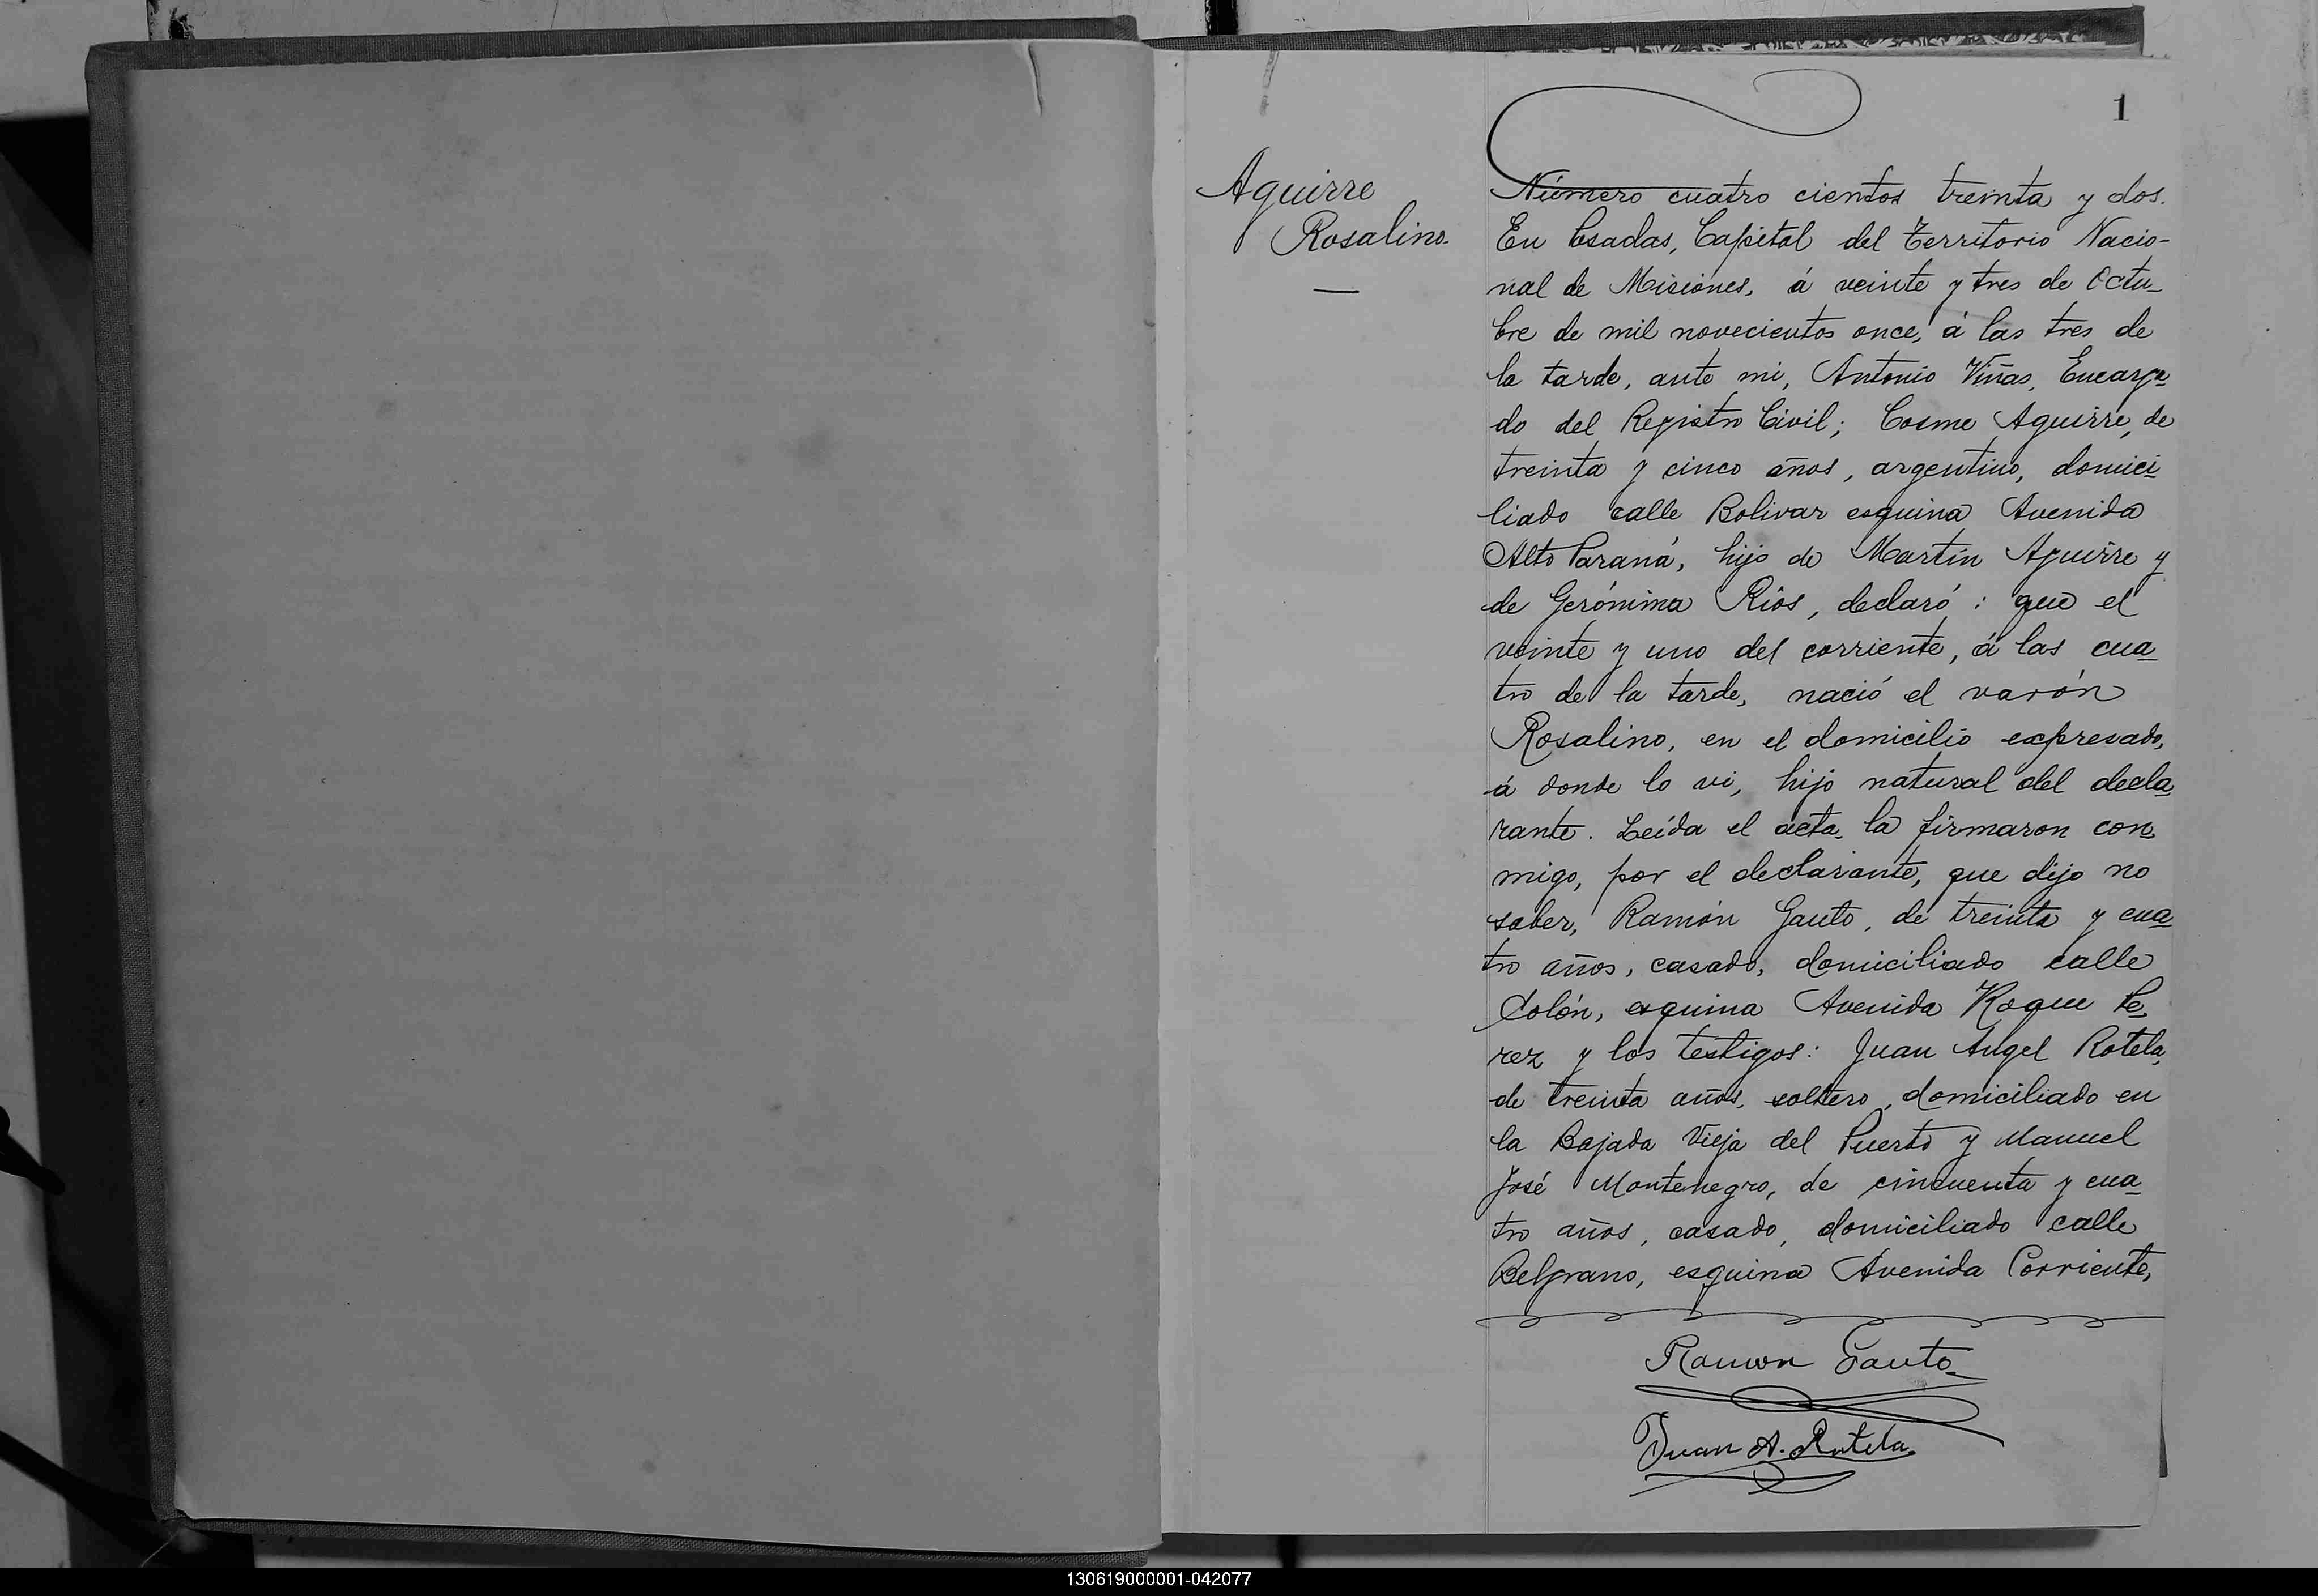 1
Aguirre
Rosalino.
Número cuatro cientos treinta y dos.
En Posadas, Capital del Territorio Nacio-
nal de Misiones, á veinte y tres de Octu-
bre de mil novecientos once, á las tres de
la tarde, ante mi, Antonio Viñas, Encarga-
do del Registro Civil; Cosme Aguirre, de
treinta y cinco años, argentino, domici-
liado calle Bolivar esquina Avenida
Alto Paraná, hijo de Martín Aguirre y
de Gerónima Ríos, declaró: que el
veinte y uno del corriente, á las cua-
tro de la tarde, nació el varón
Rosalino, en el domicilio expresado,
á donde lo vi, hijo natural del decla-
rante. Leída el acta, la firmaron con-
migo, por el declarante, que dijo no
saber, Ramón Gauto, de treinta y cua-
tro años, casado, domiciliado calle
Colón, esquina Avenida Roque Pe-
rez y los testigos: Juan Angel Rotela,
de treinta años, soltero, domiciliado en
la Bajada Vieja del Puerto y Manuel
José Montenegro, de cincuenta y cua-
tro años, casado, domiciliado calle
Belgrano, esquina Avenida Corrientes,
Ramon Gauto
Juan A. Rotela
130619000001-042077